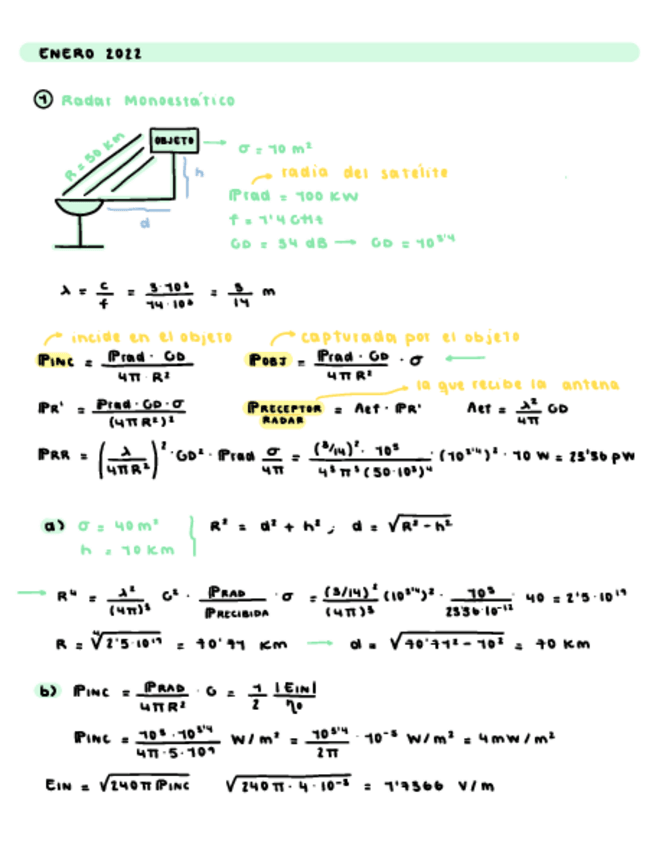 ENERO 2022
① Radar Monoestático
R = 50 km
OBJETO
h
d
σ = 10 m²
radia del satélite
Prad = 100 KW
f = 1'4 GHz
GD = 34 dB → GD = 10^3'4
λ = c/f = 3·10⁸/14·10⁸ = 3/14 m
incide en el objeto
capturada por el objeto
PINC = Prad · GD / 4π R²
POBJ = Prad · GD / 4π R² · σ ←
la que recibe la antena
PR' = Prad · GD · σ / (4π R²)²
PRECEPTOR RADAR = Aef · PR'
Aef = λ²/4π GD
PRR = (λ / 4π R²)² · GD² · Prad σ/4π = (3/14)² · 10⁵ / 4³ π³ (50·10³)⁴ · (10^3'4)² · 10 W = 23'36 pW
a) σ = 40 m²
h = 10 Km
R² = d² + h² ; d = √(R² - h²)
→ R⁴ = λ²/(4π)³ G² · PRAD/PRECIBIDA · σ = (3/14)²/(4π)³ (10^3'4)² · 10⁵/23'36·10⁻¹² · 40 = 2'5 · 10¹⁹
R = ⁴√(2'5·10¹⁹) = 70'71 Km → d = √(70'71² - 10²) = 70 Km
b) PINC = PRAD/4π R² · G = 1/2 |EIN|/η₀
PINC = 10⁵ · 10^3'4 / 4π · 5 · 10⁹ W/m² = 10^3'4/2π · 10⁻⁵ W/m² = 4mW/m²
EIN = √(240π PINC) √(240π · 4 · 10⁻³) = 1'7366 V/m